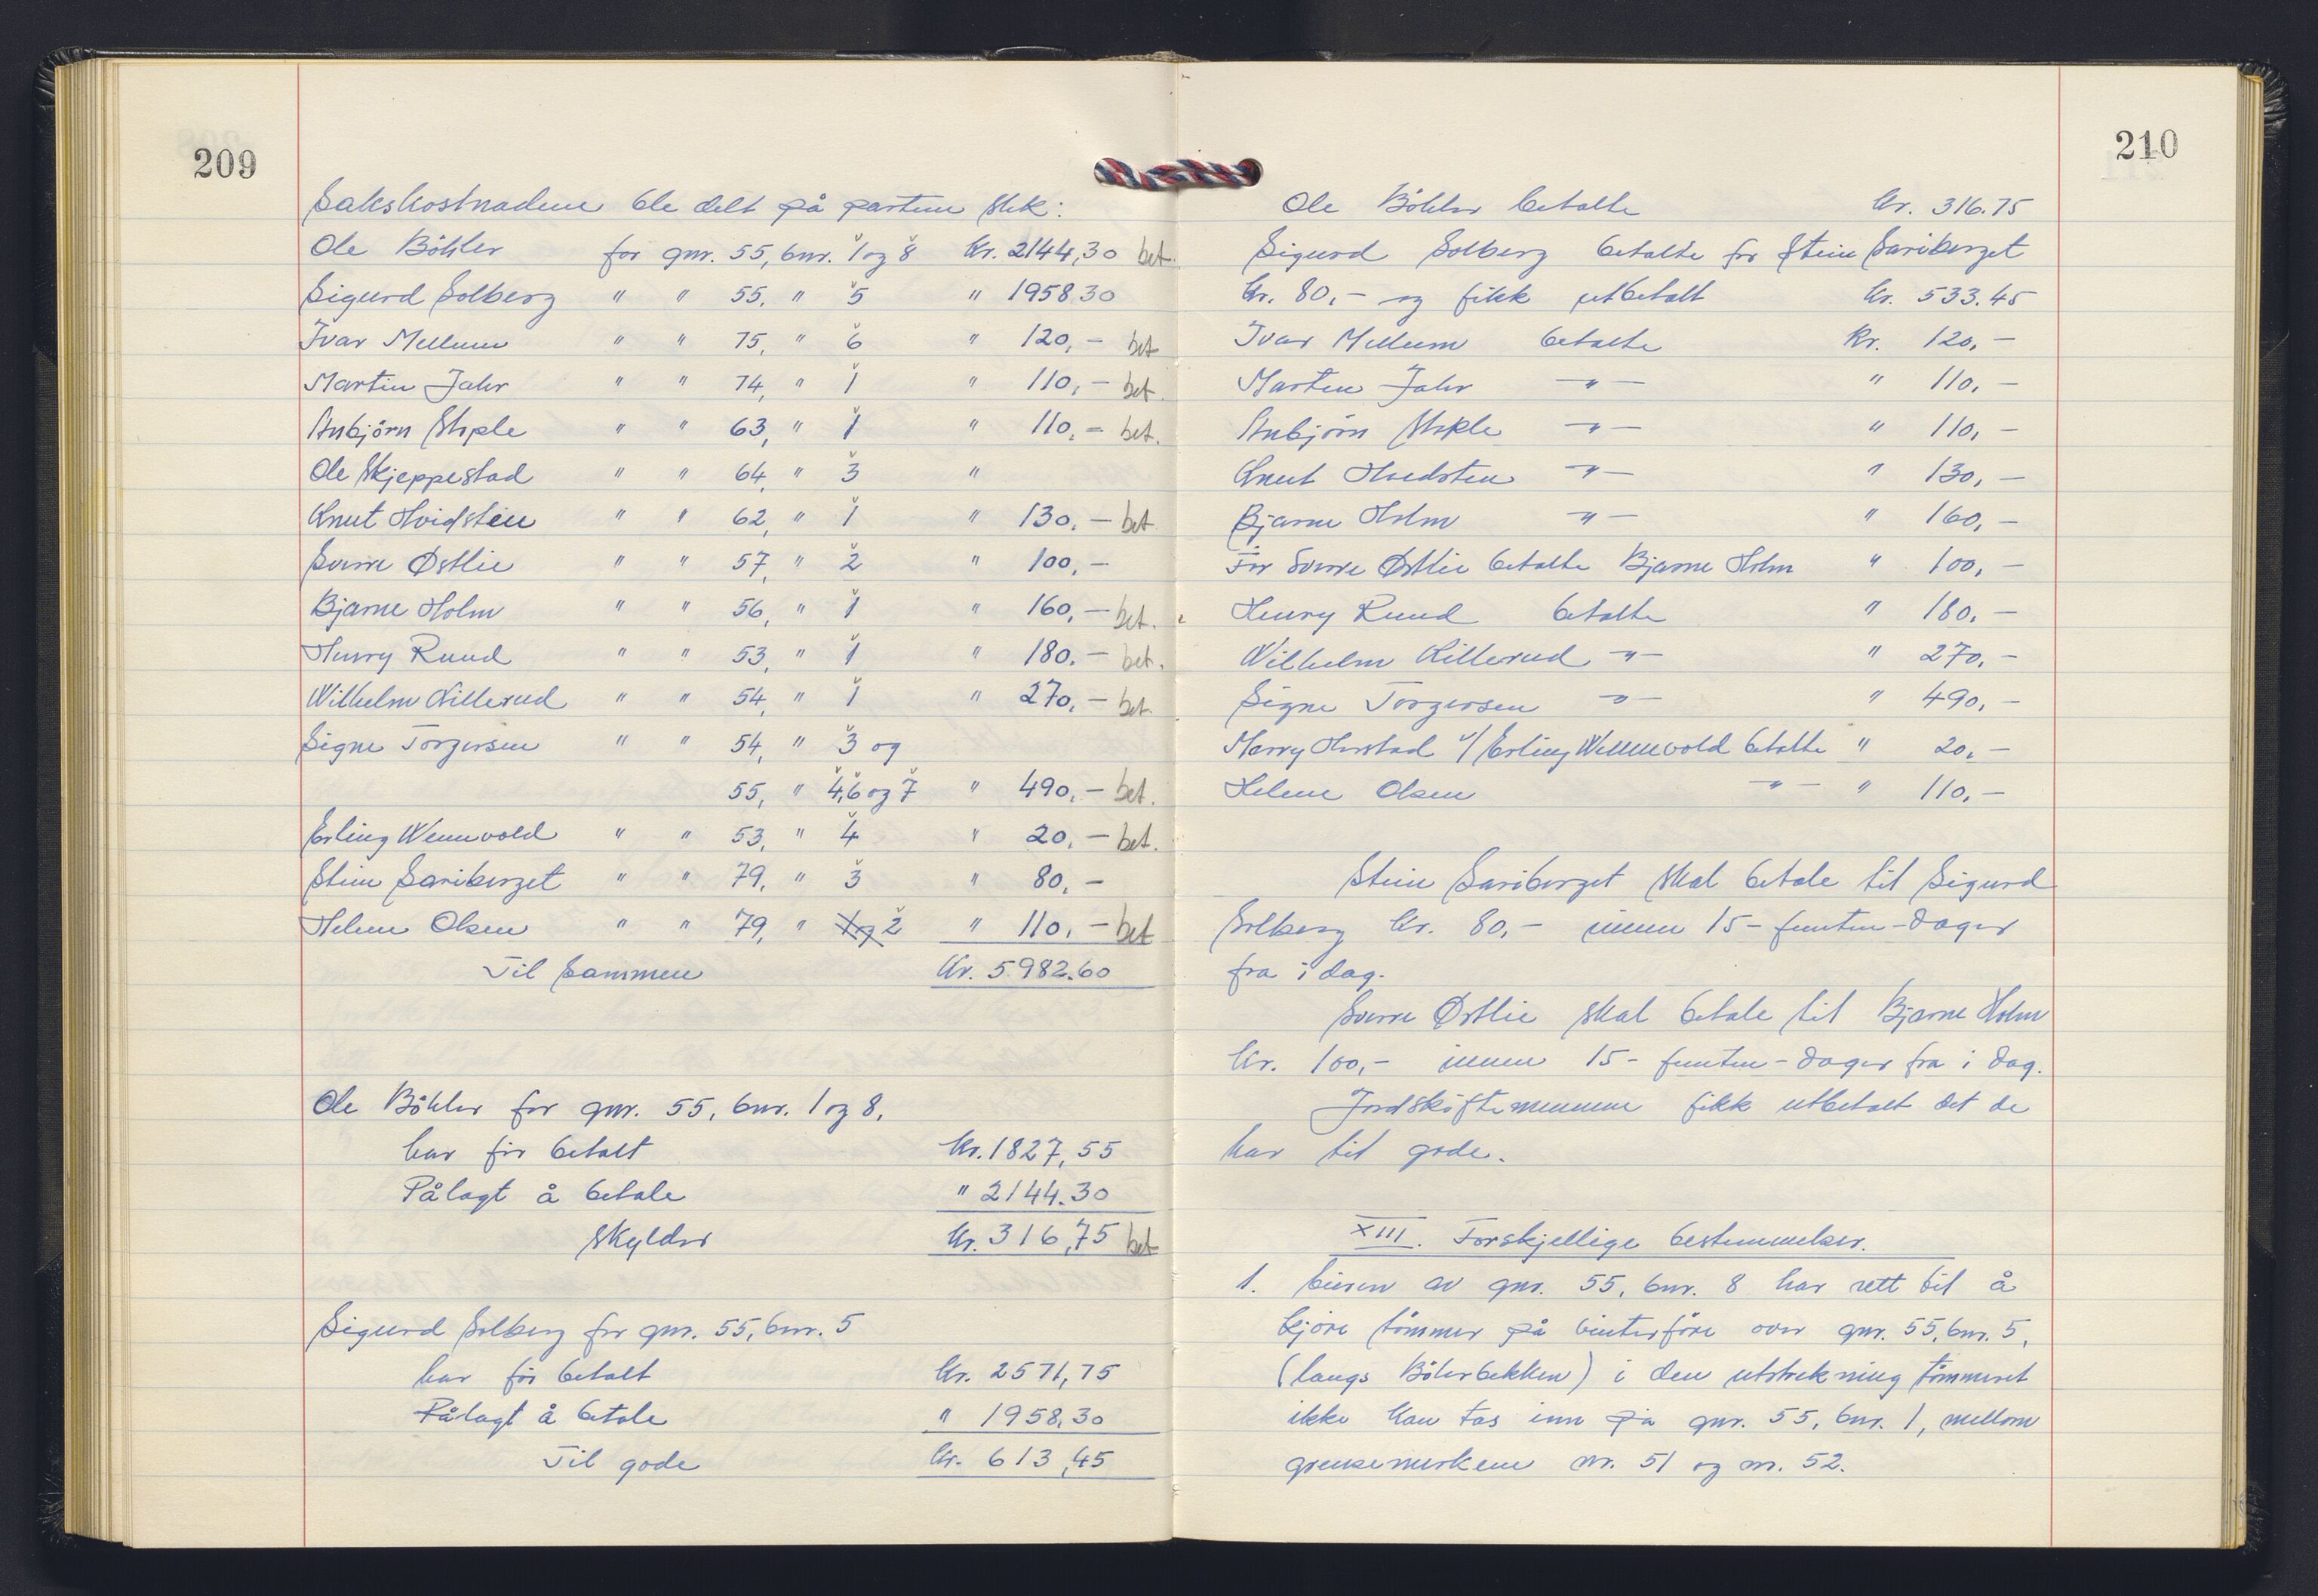 209
Sakskostnadene ble delt på partene slik:
Ole Böhler for gnr. 55, bnr. 1 og 8 kr. 2144,30 bet.
Sigurd Solberg " " 55, " 5 " 1958.30
Ivar Mellum " " 75, " 6 " 120,- bet
Martin Jahr " " 74, " 1 " 110,- bet.
Anbjörn Stople " " 63, " 1 " 110,- bet.
Ole Skjeppestad " " 64, " 3 "
Knut Hvidsten " " 62, " 1 " 130,- bet
Sverre Østlie " " 57, " 2 " 100,-
Bjarne Holm " " 56, " 1 " 160,- bet.
Henry Ruud " " 53, " 1 " 180,- bet.
Wilhelm Killerud " " 54, " 1 " 270,- bet.
Signe Torgersen " " 54, " 3 og
55, " 4,6 og 7 " 490,- bet.
Erling Wennevold " " 53, " 4 " 20,- bet.
Stein Sariberget " " 79, " 3 " 80,-
Helene Olsen " " 79, " 1 og 2 " 110,- bet
Til sammen kr. 5982.60
Ole Böhler for gnr. 55, bnr. 1 og 8,
har för betalt kr. 1827,55
Pålagt å betale " 2144.30
Skylder kr. 316,75 bet
Sigurd Solberg for gnr. 55, bnr. 5
har för betalt kr. 2571,75
Pålagt å betale " 1958,30
Til gode kr. 613,45
210
Ole Böhler betalte kr. 316.75
Sigurd Solberg betalte for Stein Sariberget
kr. 80,- og fikk utbetalt kr. 533.45
Ivar Mellum betalte kr. 120,-
Martin Jahr -"- " 110,-
Anbjörn Stople -"- " 110,-
Knut Hvidsten -"- " 130,-
Bjarne Holm -"- " 160,-
For Sverre Østlie betalte Bjarne Holm " 100,-
Henry Ruud betalte " 180,-
Wilhelm Killerud -"- " 270,-
Signe Torgersen -"- " 490,-
Harry Horstad v/ Erling Wennevold betalte " 20,-
Helene Olsen -"- " 110,-
Stein Sariberget skal betale til Sigurd
Solberg kr. 80,- innen 15- femten - dager
fra i dag.
Sverre Østlie skal betale til Bjarne Holm
kr. 100,- innen 15- femten - dager fra i dag.
Jordskiftemennene fikk utbetalt det de
har til gode.
XIII. Forskjellige bestemmelser.
1. Eieren av gnr. 55, bnr. 8 har rett til å
kjöre tömmer på vinterföre over gnr. 55, bnr. 5,
(langs Bölerbekken) i den utstrekning tömmeret
ikke kan tas inn på gnr. 55, bnr. 1, mellom
grensemerkene nr. 51 og nr. 52.